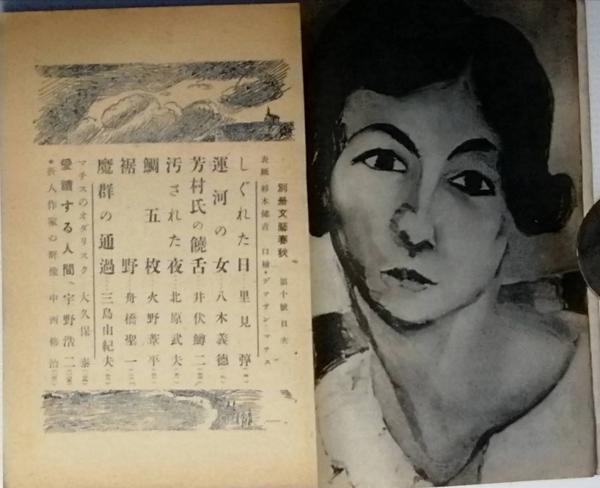 別册文藝春秋 第十號目次
表紙 杉本健吉 口繪・デッサン・マチス
しぐれた日 里見弴
運河の女 八木義德
芳村氏の饒舌 井伏鱒二
汚された夜 北原武夫
鯛五枚 火野葦平
裾野 舟橋聖一
魔群の通過 三島由紀夫
マチスのオダリスク 大久保泰
愛讀する人間 宇野浩二
新人作家の群像 中西